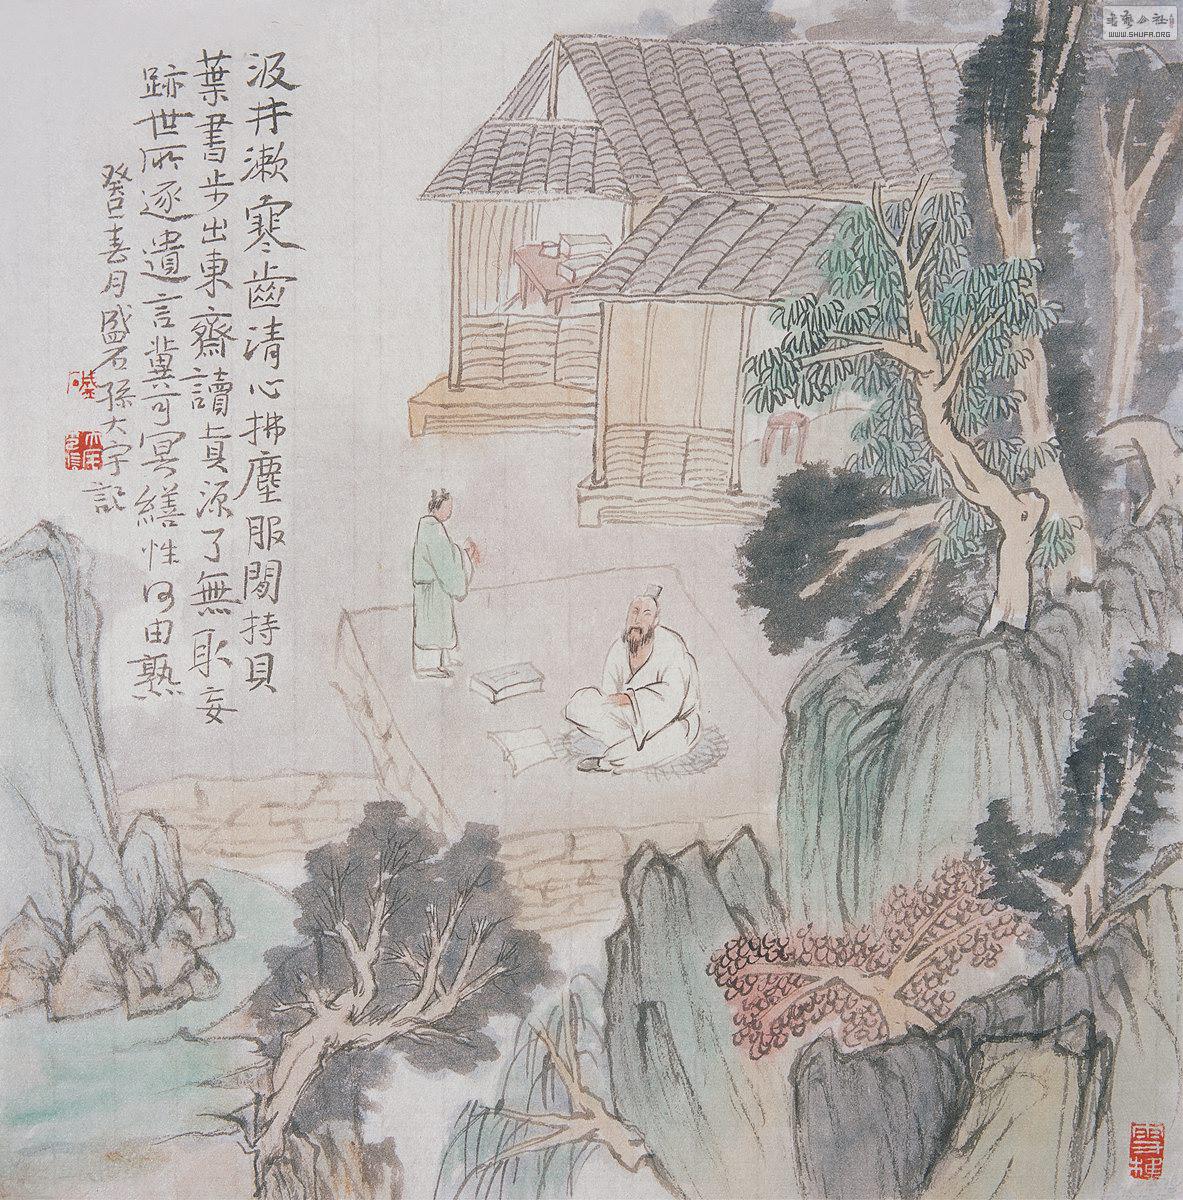 汲井漱寒齒清心拂塵服閒持貝
葉書步出東齋讀真源了無取妄
跡世所逐遺言冀可冥繕性何由熟
癸巳春月盛石孫大宇記
雪堂
WWW.SHUFA.ORG